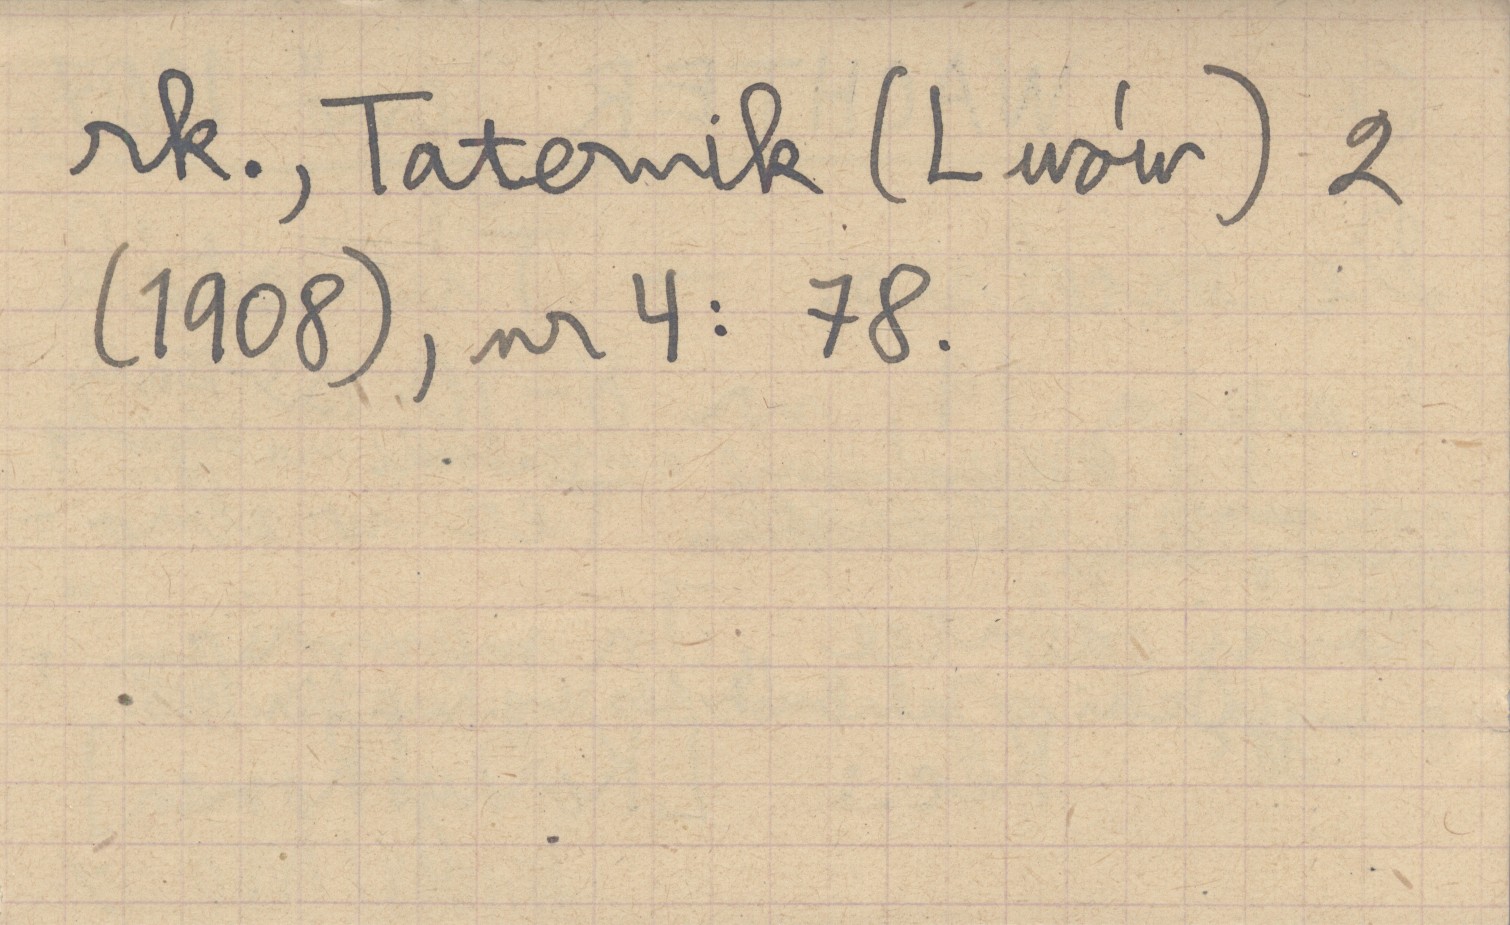 rk., Taternik (Lwów) 2
(1908), nr 4: 78.